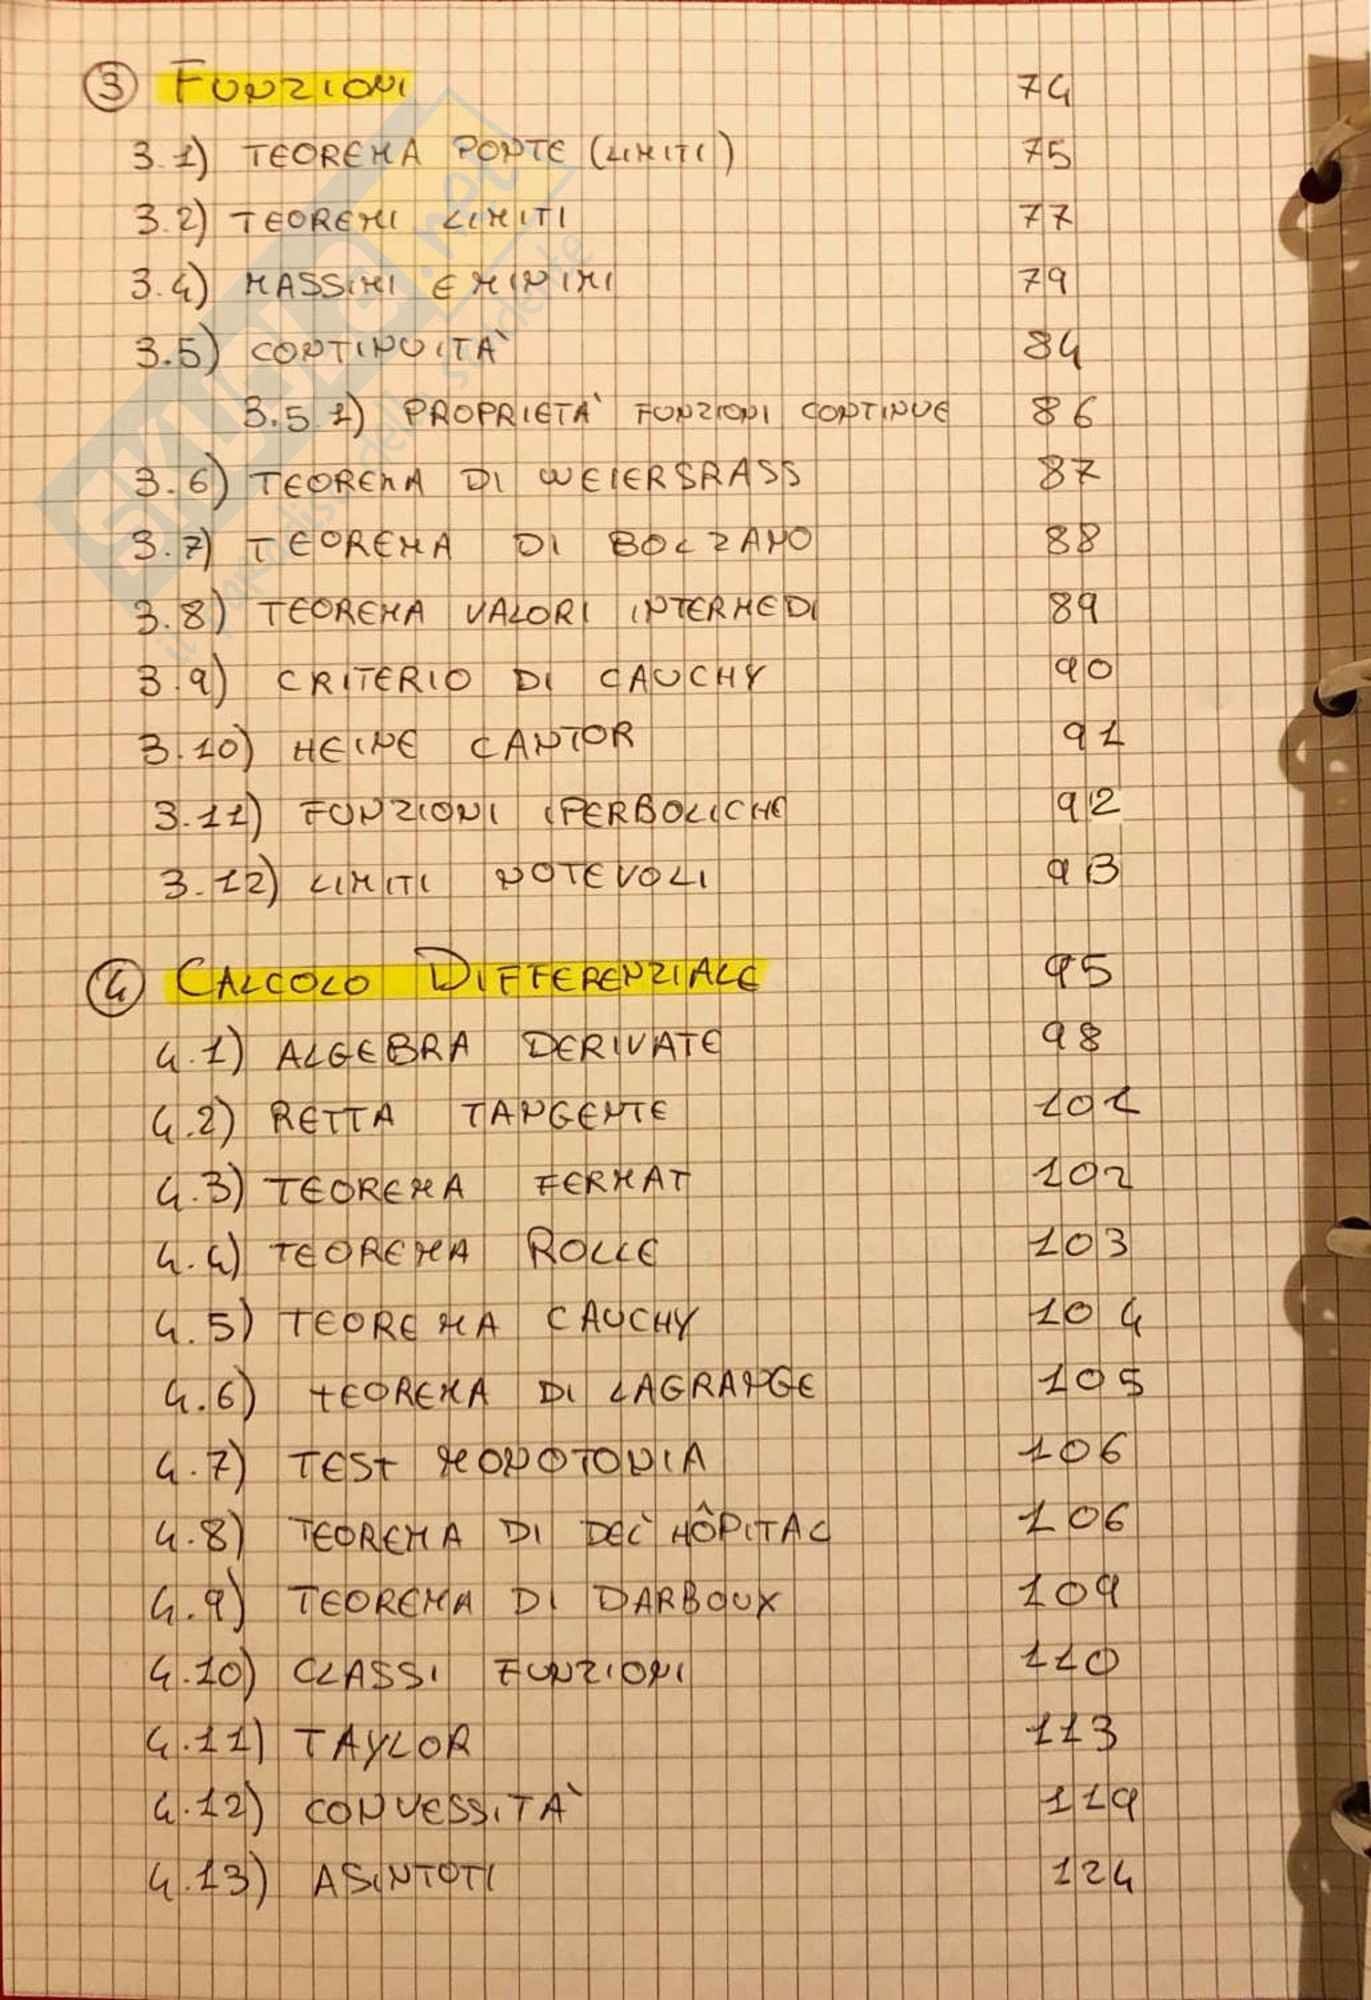 3 FUNZIONI 74
3.1) TEOREMA PONTE (LIMITI) 75
3.2) TEOREMI LIMITI 77
3.4) MASSIMI E MINIMI 79
3.5) CONTINUITA' 84
3.5.1) PROPRIETA' FUNZIONI CONTINUE 86
3.6) TEOREMA DI WEIERSRASS 87
3.7) TEOREMA DI BOLZANO 88
3.8) TEOREMA VALORI INTERMEDI 89
3.9) CRITERIO DI CAUCHY 90
3.10) HEINE CANTOR 91
3.11) FUNZIONI IPERBOLICHE 92
3.12) LIMITI NOTEVOLI 93
4 CALCOLO DIFFERENZIALE 95
4.1) ALGEBRA DERIVATE 98
4.2) RETTA TANGENTE 101
4.3) TEOREMA FERMAT 102
4.4) TEOREMA ROLLE 103
4.5) TEOREMA CAUCHY 104
4.6) TEOREMA DI LAGRANGE 105
4.7) TEST MONOTONIA 106
4.8) TEOREMA DI DEL' HÔPITAL 106
4.9) TEOREMA DI DARBOUX 109
4.10) CLASSI FUNZIONI 110
4.11) TAYLOR 113
4.12) CONVESSITA' 119
4.13) ASINTOTI 124
SKUOLA.net
il paradiso dello studente